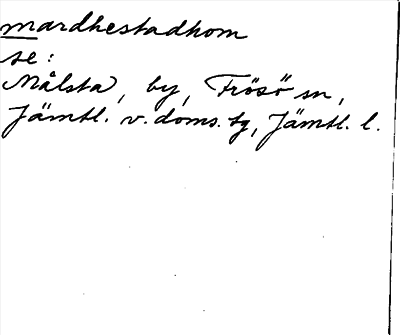 mardhestadhom
se:
Målsta, by, Frösö sn,
Jämtl. v. doms. tg, Jämtl. l.